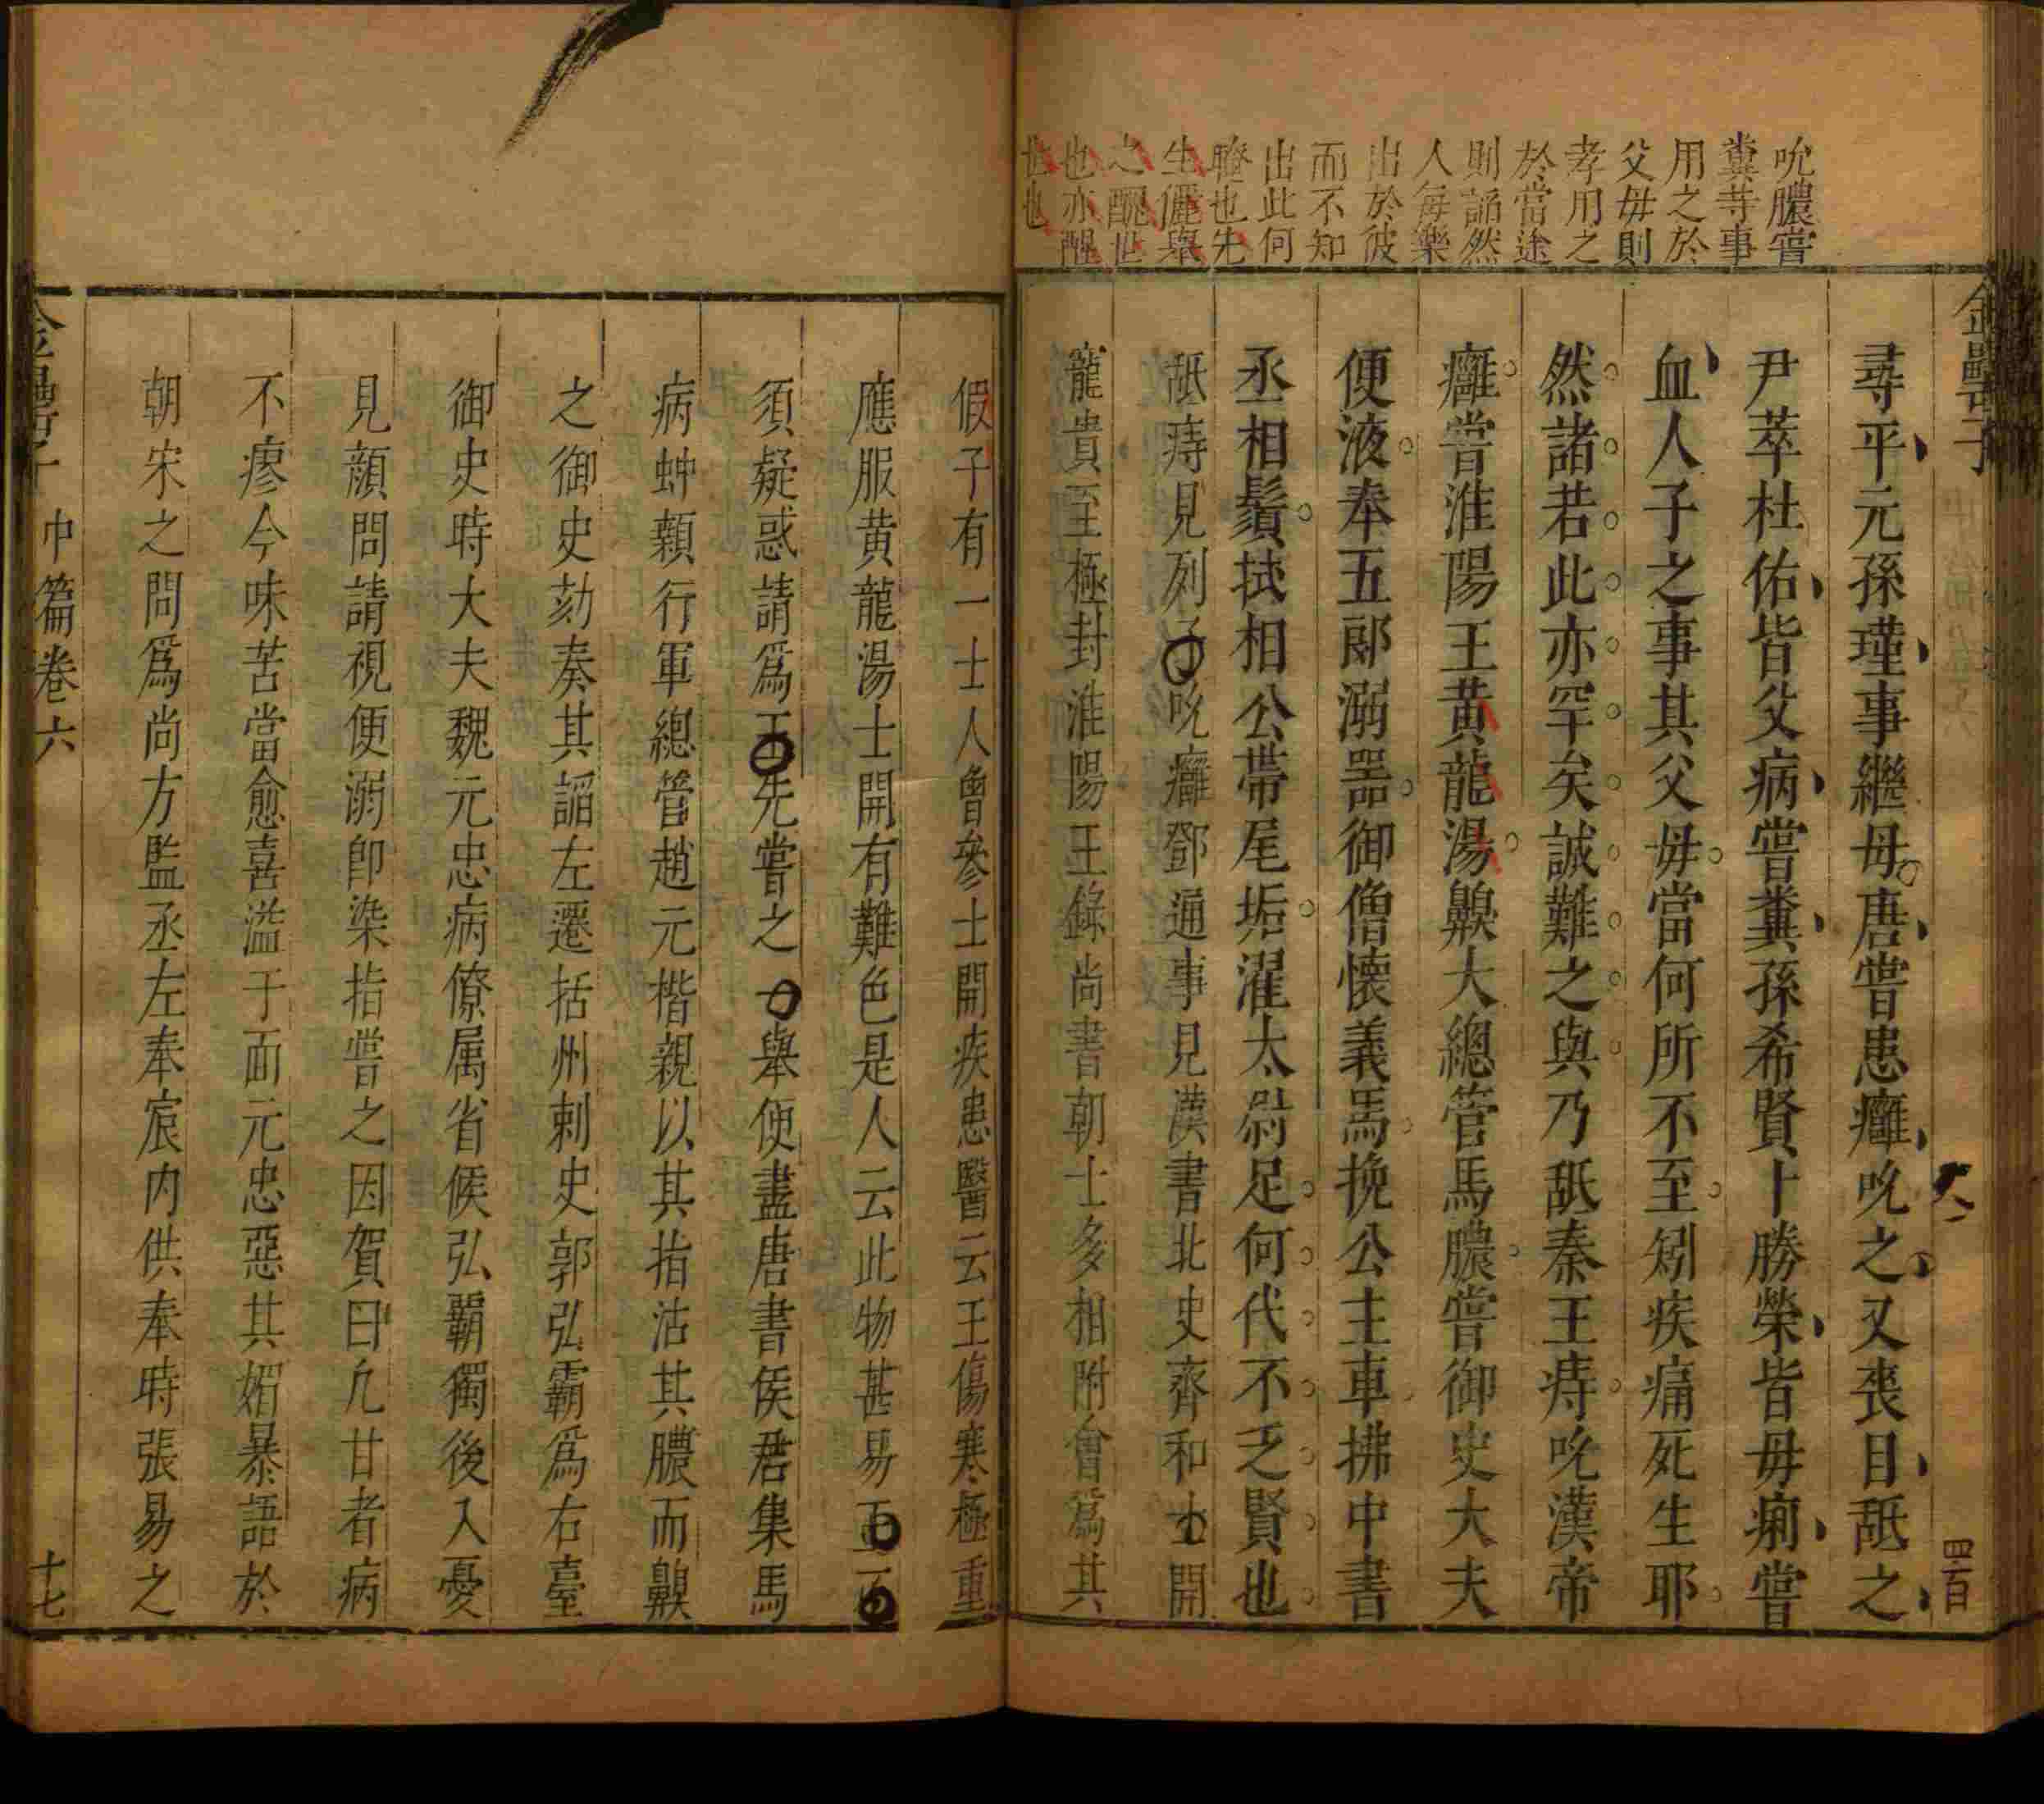 吮膿嘗
糞等事
用之於
父毋則
孝用之
於當途
則謟然
人每樂
出於彼
而不知
出此何
體也先
生儷舉
之醜世
也亦醒
世也
金罍子
四百
尋平元孫瑾事繼母唐嘗患癰吮之又喪目舐之
尹萃杜佑皆父病嘗糞孫希賢卜勝榮皆毋痢嘗
血人子之事其父毋當何所不至矧疾痛死生耶
然諸若此亦罕矣誠難之與乃舐秦王痔吮漢帝
癰嘗淮陽王黄龍湯歠大總管馬膿嘗御史大夫
便液奉五郞溺噐御僧懐義馬挽公主車拂中書
丞相鬚拭相公帶尾垢濯太尉足何代不乏賢也
舐痔見列子吮癰鄧通事見漢書北史齊和士開
寵貴至極封淮陽王錄尚書朝士多相附會爲其
假子有一士人曾參士開疾患醫云王傷寒極重
應服黄龍湯士開有難色是人云此物甚易王不
須疑惑請爲王先嘗之一舉便盡唐書侯君集馬
病蚛顙行軍總管趙元楷親以其指沾其膿而歠
之御史劾奏其謟左遷括州剌史郭弘霸爲右臺
御史時大夫魏元忠病僚属省候弘覇獨後入憂
見顔問請視便溺卽染指嘗之因賀曰凢甘者病
不瘳今味苦當愈喜溢于面元忠惡其媚暴語於
朝宋之問爲尚方監丞左奉宸内供奉時張易之
金罍子
中篇卷六
十七